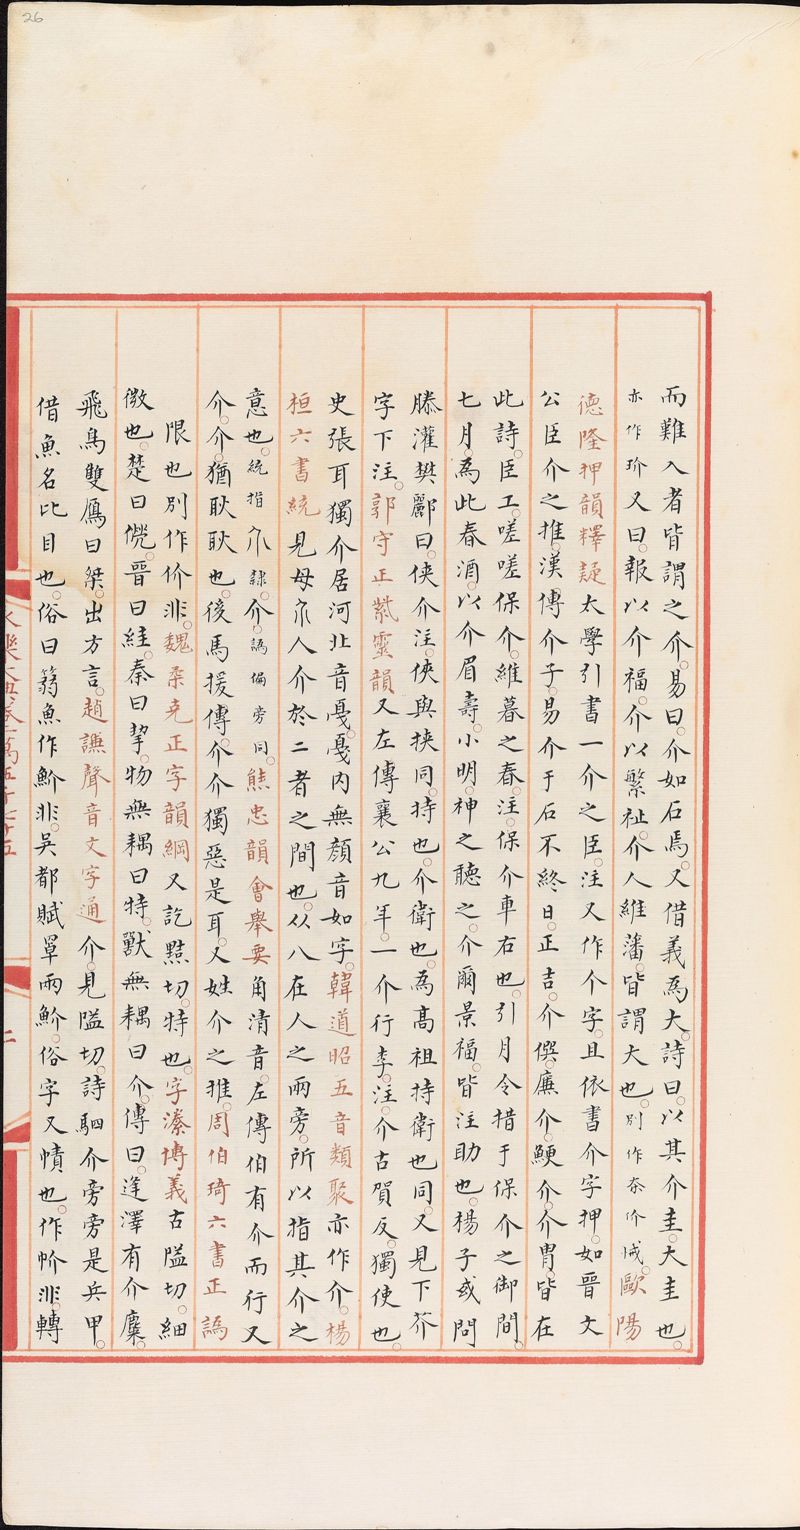 26
而難入者皆謂之介。易曰。介如石焉。又借義為大。詩曰。以其介圭。大圭也。
亦作玠又曰。報以介福。介以繁祉。介人維藩。皆謂大也。別作夰价㤥。歐陽
德隆押韻釋疑太學引書一介之臣。注又作个字。且依書介字押。如晉文
公臣介之推。漢傅介子。易介于石不終日。正吉。介僎。廉介。鯁介。介胄。皆在
此詩。臣工。嗟嗟保介。維暮之春。注。保介車右也。引月令措于保介之御間。
七月。為此春酒。以介眉壽。小明。神之聽之。介爾景福。皆注助也。楊子或問
滕灌樊酈曰。俠介注。俠與挾同。持也。介衛也。為高祖持衛也同。又見下芥
字下注。郭守正紫雲韻又左傳襄公九年。一介行李。注。介古賀反。獨使也。
史張耳獨介居河北音戞。戞內無顏音如字。韓道昭五音類聚亦作介。楊
桓六書統見母介人介於二者之間也。从八在人之兩旁。所以指其介之
意也。統指介隸。介譌偏旁同。熊忠韻會舉要角清音。左傳伯有介而行又
介。介。猶耿耿也。後馬援傳。介介獨惡是耳。又姓介之推。周伯琦六書正譌
限也別作价非。魏柔克正字韻綱又訖黠切。特也。字潫博義古隘切。細
微也。楚曰㒟。晉曰絓。秦曰挈。物無耦曰特。獸無耦曰介。傳曰。逢澤有介麋。
飛鳥雙鴈曰椉。出方言。趙謙聲音文字通介。見隘切。詩駟介旁旁是兵甲。
借魚名比目也。俗曰篛魚作魪非。吳都賦罩兩魪。俗字又幘也。作㠹非。轉
永樂大典卷一萬五千七十五
二